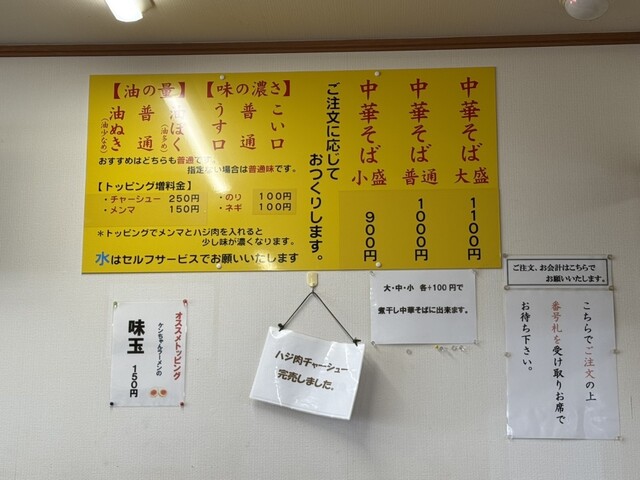 中華そば 大盛 1100円
中華そば 普通 1000円
中華そば 小盛 900円
ご注文に応じて
おつくりします。
【味の濃さ】
こい口
普通
うす口
【油の量】
油ほく
(油多め)
普通
油ぬき
(油少なめ)
おすすめはどちらも普通です。
指定ない場合は普通味です。
【トッピング増料金】
・チャーシュー 250円
・メンマ 150円
・のり 100円
・ネギ 100円
*トッピングでメンマとハジ肉を入れると
少し味が濃くなります。
水はセルフサービスでお願いいたします
オススメトッピング
ケンちゃんラーメンの
味玉
150円
ハジ肉チャーシュー
完売しました。
大・中・小 各+100円で
煮干し中華そばに出来ます。
ご注文、お会計はこちらで
お願いいたします。
こちらでご注文の上
番号札を受け取りお席で
お待ち下さい。